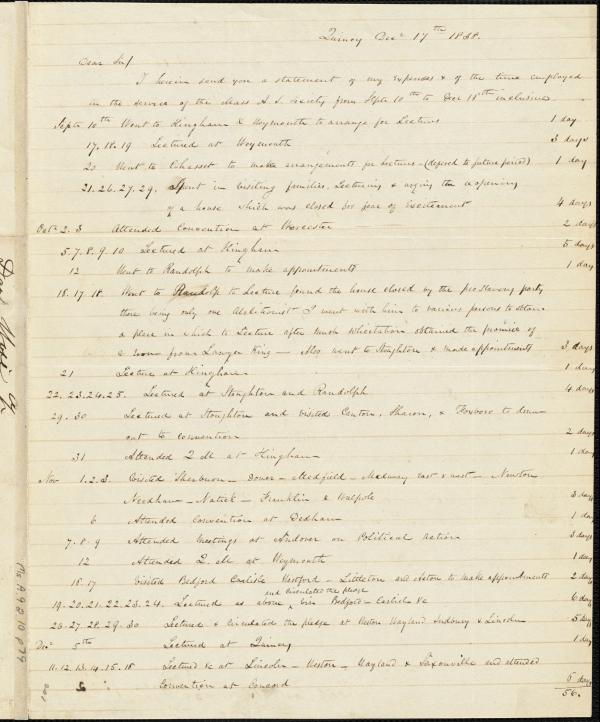 Quincy Decr 17th 1838.
Dear Sir/
I herein send you a statement of my expenses & of the time employed
in the service of the Mass A. S. Society from Septr 10th to Decr 18th inclusive
Septr 10th Went to Hingham & Weymouth to arrange for Lectures 1 day
17. 18. 19 Lectured at Weymouth 3 days
20 Went to Cohasset to make arrangements for Lectures – (deferred to future period) 1 day
21. 26. 27. 29. Spent in visiting families, Lecturing & urging the reopening
of a house which was closed for fear of Excitement 4 days
Octr 2. 3 Attended Convention at Worcester 2 days
5. 7. 8. 9. 10 Lectured at Hingham 5 days
12 Went to Randolph to make appointments 1 day
18. 17. 18. Went to Randolp to Lecture found the house closed by the pro slavery party
there being only one Abolitionist I went with him to various persons to obtain
a place in which to Lecture after much solicitation obtained the promise of
a room from Lawyer King — Also went to Stoughton & made appointments 3 days
21 Lecture at Hingham 1 day
22. 23. 24. 25. Lectured at Stoughton and Randolph 4 days
29. 30 Lectured at Stoughton and visited Canton, Sharon, & Foxboro to
out to convention 2 days
31 Attended 2 M at Hingham 1 day
Nov 1. 2. 3. Visited Sherburn – Dover – Medfield – Medway East & west – Newton
Needham – Natick – Franklin & Walpole 3 days
6 Attended Convention at Dedham 1 day
7. 8. 9 Attended Meetings at Andover on Political action 3 days
12 Attended 2 M at Weymouth 1 day
16 17 Visited Bedford Carlisle Westford – Littleton and Acton to make appointments 2 days
19. 20. 21. 22. 23. 24. Lectured as above and circulated the pledge Bedford – Carlisle &c 6 days
26. 27. 28. 29. 30 Lecture & Circulated the pledge at Weston Wayland Sudbury & Lincoln 5 days
Decr 5th Lectured at Quincy 1 day
11. 12. 13. 14. 15. 18 Lectured &c at Lincoln – Weston – Wayland & Saxonville and attended
Convention at Concord 6 days
56.
Ms. A.9.2.10 p 79